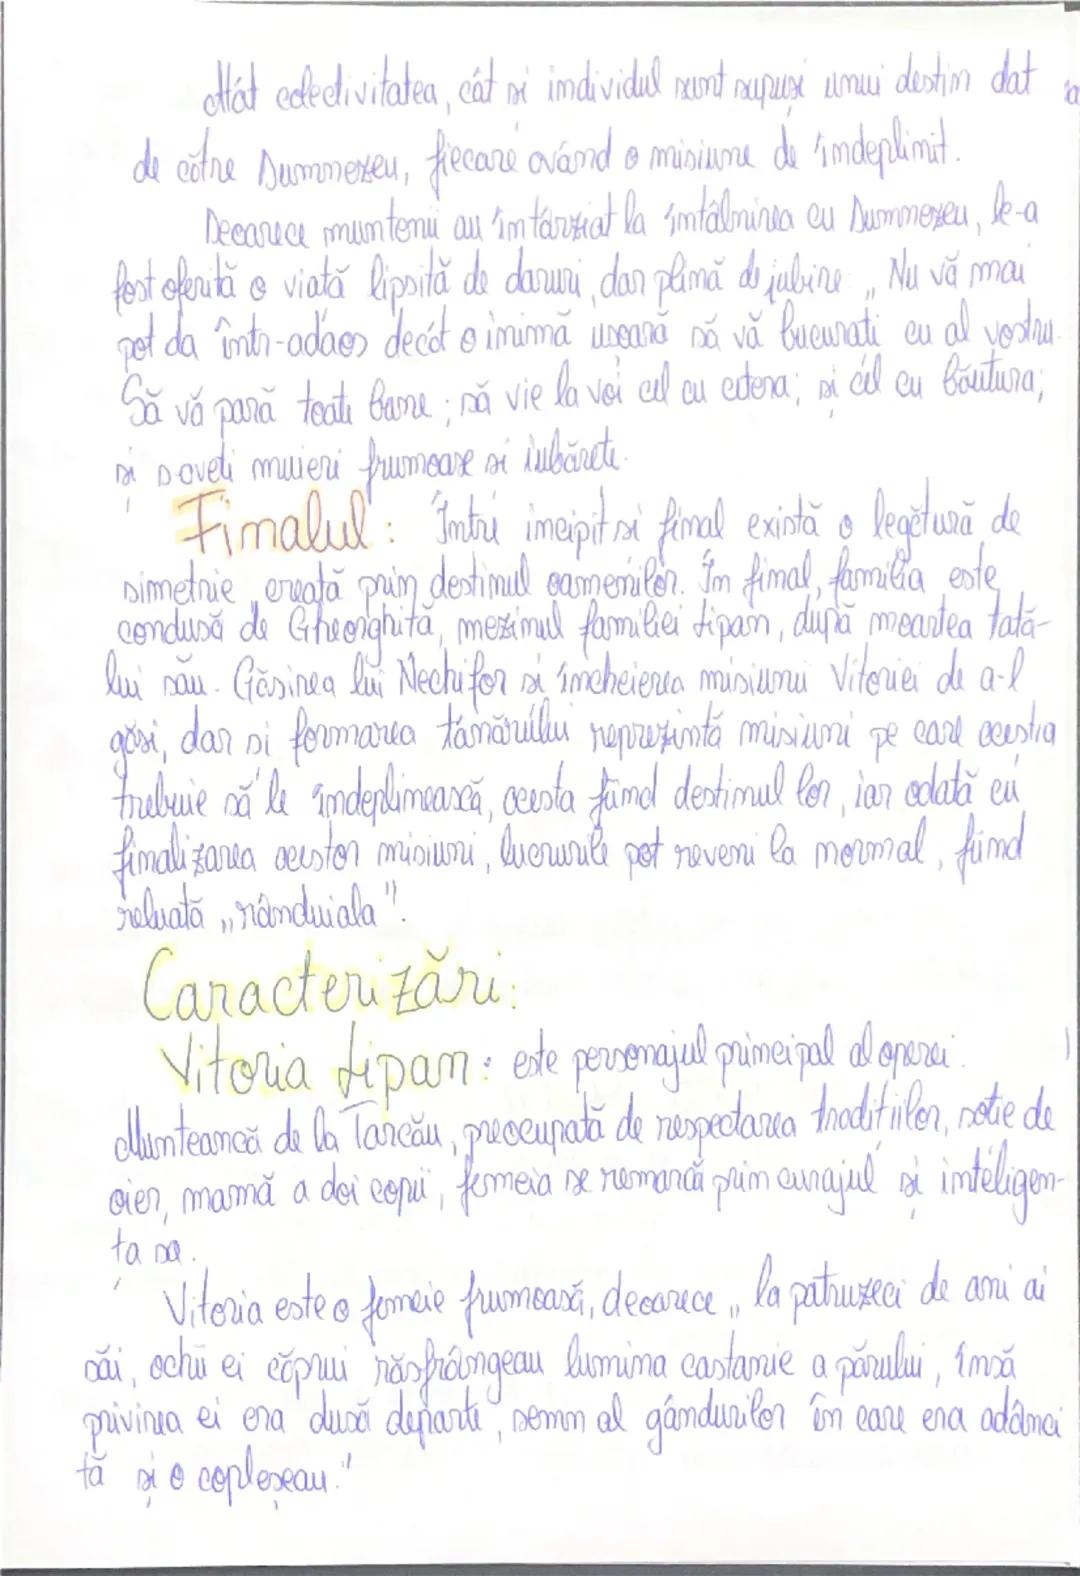 Atât colectivitatea, cât și individul sunt supuși unui destin dat
de către Dumnezeu, fiecare având o misiune de îndeplinit.
Deoarece muntenii au întârziat la întâlnirea cu Dumnezeu, le-a
fost oferită o viață lipsită de daruri, dar plină de iubire: „Nu vă mai
pot da într-adaos decât o inimă ușoară să vă bucurați cu al vostru.
Să vă pară toate bune; să vie la voi cel cu cetera; și cel cu băutura;
și s-aveți muieri frumoase și iubărețe.
Finalul: Între incipit și final există o legătură de
simetrie, creată prin destinul oamenilor. În final, familia este
condusă de Gheorghiță, mezinul familiei Lipan, după moartea tată-
lui său. Găsirea lui Nechifor și încheierea misiunii Vitoriei de a-l
găsi, dar și formarea tânărului reprezintă misiuni pe care aceștia
trebuie să le îndeplinească, acesta fiind destinul lor, iar odată cu
finalizarea acestor misiuni, lucrurile pot reveni la normal, fiind
reluată „rânduiala".
Caracterizări:
Vitoria Lipan: este personajul principal al operei.
Munteancă de la Tarcău, preocupată de respectarea tradițiilor, soție de
oier, mamă a doi copii, femeia se remarcă prin curajul și inteligen-
ța sa.
Vitoria este o femeie frumoasă, deoarece „la patruzeci de ani ai
săi, ochii ei căprui răsfrângeau lumina castanie a părului, însă
privirea ei era dusă departe, semn al gândurilor în care era adânci
tă și o copleșeau."